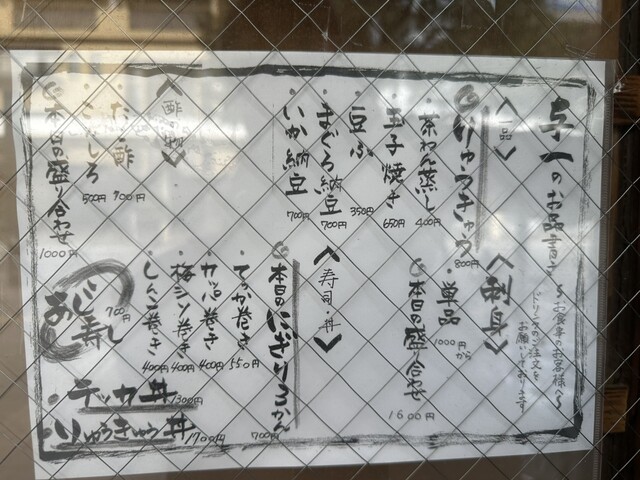 与一のお品書き
〜お座席のお客様へ〜
ドリンクのご注文を
お願いしております
〈一品〉
りゅうきゅう 800円
茶わん蒸し 400円
玉子焼き 650円
豆ふ 350円
まぐろ納豆 700円
いか納豆 700円
〈酢の物〉
たこ酢 700円
こはしろ 500円
本日の盛り合わせ 1000円
〈刺身〉
単品 1000円から
本日の盛り合わせ 1600円
〈寿司・丼〉
本日のにぎり3かん 700円
てっか巻き 550円
カッパ巻き 400円
梅しそ巻き 400円
しんこ巻き 400円
あじ寿し 700円
テッカ丼 1300円
りゅうきゅう丼 1700円